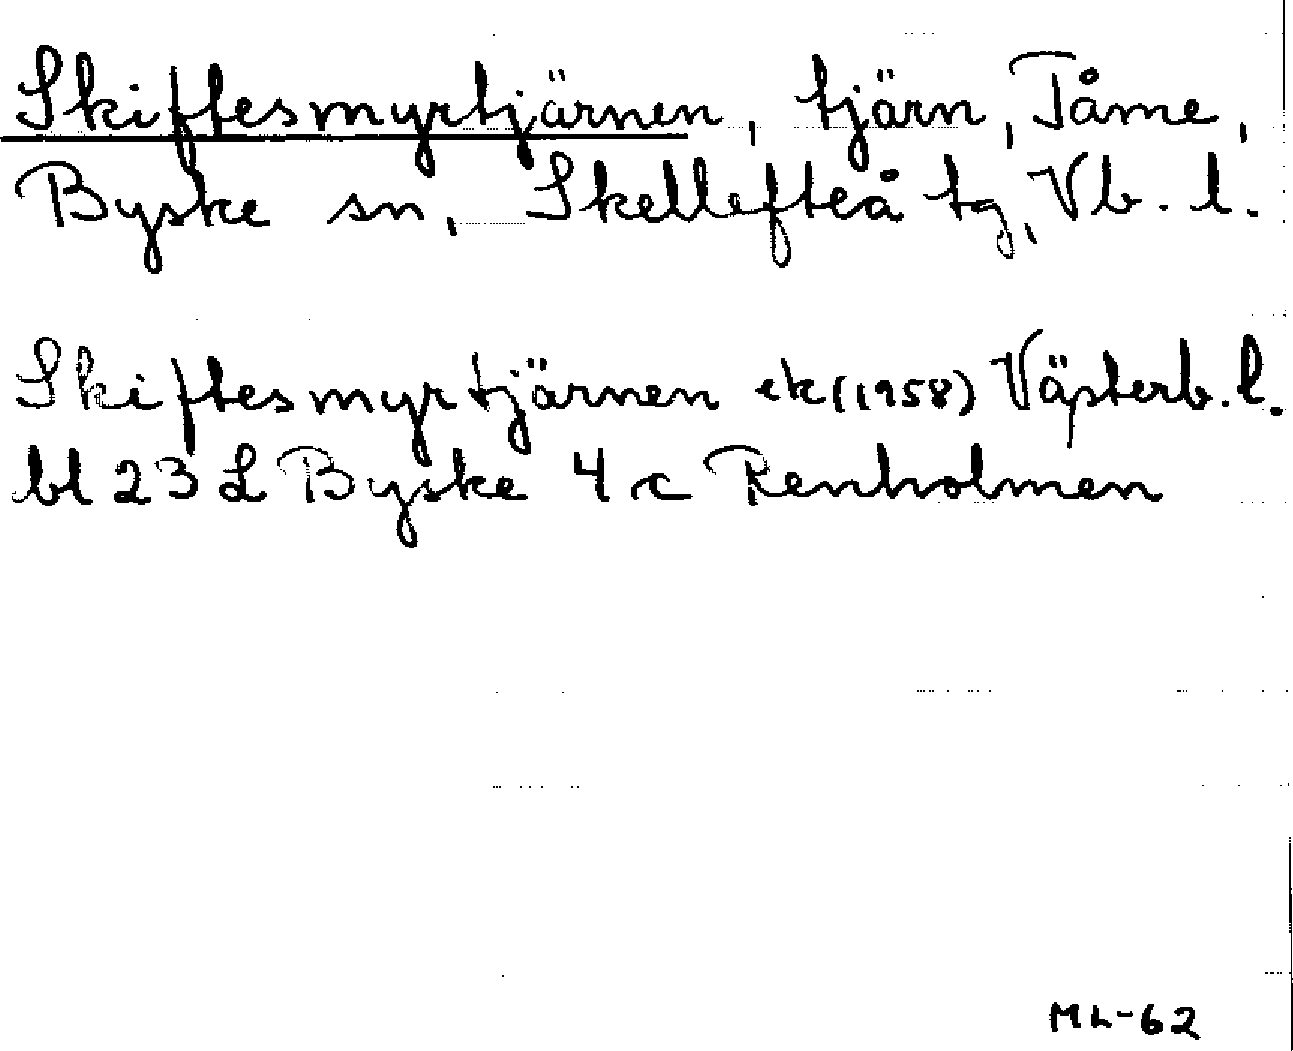 Skiftesmyrtjärnen, tjärn, Tåme,
Byske sn, Skellefteå tg, Vb. l.
Skiftesmyrtjärnen ek (1958) Västerb. l.
bl 23 L Byske 4 c Renholmen
ML-62